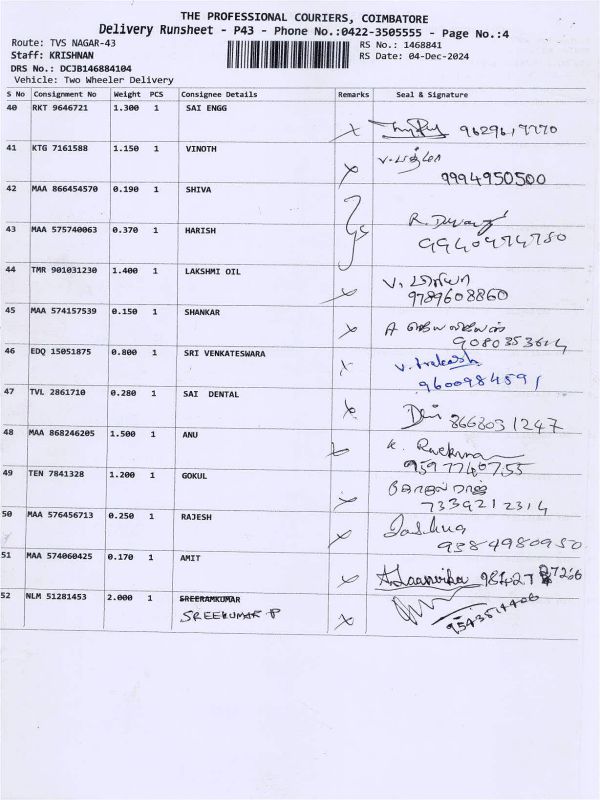 THE PROFESSIONAL COURIERS, COIMBATORE
Delivery Runsheet - P43 - Phone No.:0422-3505555 - Page No.:4
Route: TVS NAGAR-43 RS No.: 1468841
Staff: KRISHNAN RS Date: 04-Dec-2024
DRS No.: DCJB146884104
Vehicle: Two Wheeler Delivery
S No Consignment No Weight PCS Consignee Details Remarks Seal & Signature
40 RKT 9646721 1.300 1 SAI ENGG
41 KTG 7161588 1.150 1 VINOTH
9994950500
42 MAA 866454570 0.190 1 SHIVA
43 MAA 575740063 0.370 1 HARISH
9940974780
44 TMR 901031230 1.400 1 LAKSHMI OIL
9789608860
45 MAA 574157539 0.150 1 SHANKAR
9080353614
46 EDQ 15051875 0.800 1 SRI VENKATESWARA
V. Prakash
9600984591
47 TVL 2861710 0.280 1 SAI DENTAL
8668031247
48 MAA 868246205 1.500 1 ANU
9597740755
49 TEN 7841328 1.200 1 GOKUL
7339212314
50 MAA 576456713 0.250 1 RAJESH
Joshua
9384980950
51 MAA 574060425 0.170 1 AMIT
52 NLM 51281453 2.000 1 SREERAMKUMAR
SREEKUMAR P
9543514406